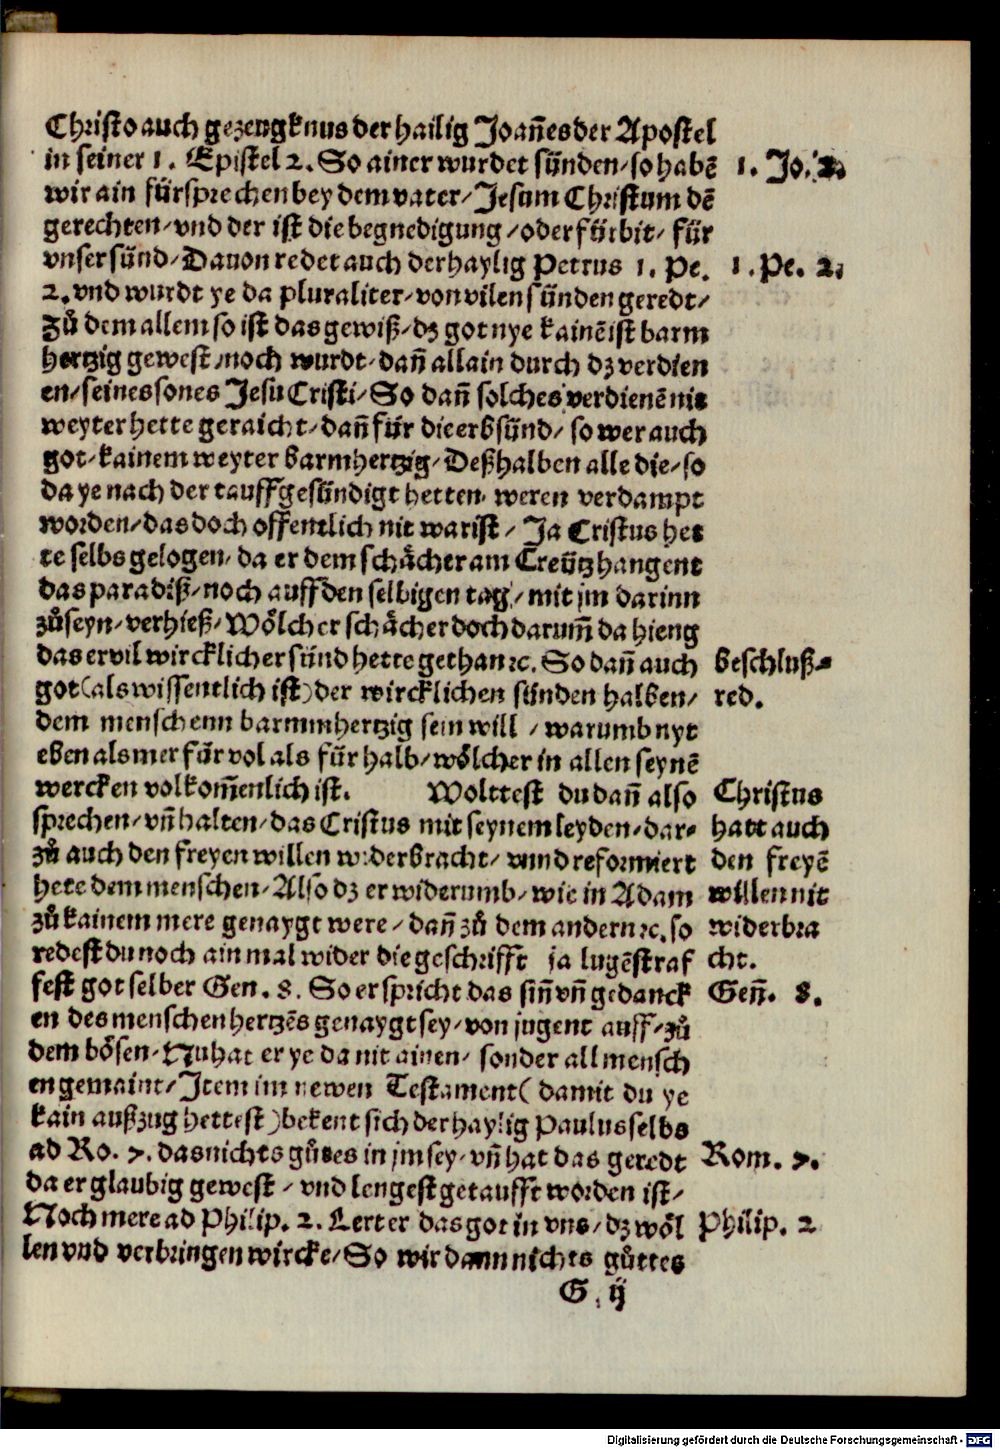 Christo auch gezeugknus der hailig Joan̄es der Apostel
in seiner 1. Epistel 2. So ainer wurdet sünden/ so habē
1. Jo. 2.
wir ain fürsprechen bey dem vater/ Jesum Christum dē
gerechten/ vnd der ist die begnedigung/ oder fürbit/ für
vnser sünd/ Dauon redet auch der haylig Petrus 1. Pe.
1. Pe. 2.
2. vnd wurdt ye da pluraliter/ von vilen sünden geredt/
Zů dem allem so ist das gewiß/ dz got nye kainē ist barm
hertzig gewest/ noch wurdt/ dan̄ allain durch dz verdien
en/ seines sones Jesu Cristi/ So dan̄ solches verdienē nit
weyter hette geraicht/ dan̄ für die erbsünd/ so wer auch
got/ kainem weyter barmhertzig/ Deßhalben alle die/ so
da ye nach der tauff gesündigt hetten/ weren verdampt
worden/ das doch offentlich nit war ist/ Ja Cristus het
te selbs gelogen/ da er dem schächer am Creütz hangent
das paradiß/ noch auff den selbigen tag/ mit jm darinn
zůseyn/ verhieß/ Wölcher schächer doch darum̄ da hieng
das er vil wircklicher sünd hette gethan ꝛc. So dan̄ auch
beschluß⸗
got (als wissentlich ist) der wircklichen sünden halben/
red.
dem menschenn barmmhertzig sein will / warumb nyt
eben als mer für vol als für halb/ wölcher in allen seynē
wercken volkom̄enlich ist. Wolttest du dan̄ also
Christus
sprechen/ vn̄ halten/ das Cristus mit seynem leyden/ dar⸗
hatt auch
zů auch den freyen willen widerbracht/ vnnd reformiert
den freyē
hete dem menschen/ Also dz er widerumb/ wie in Adam
willen nit
zů kainem mere genaygt were/ dan̄ zů dem andern ꝛc. so
widerbra
redest du noch ain mal wider die geschrifft ja lugēstraf
cht.
fest got selber Gen. 8. So er spricht das sin̄ vn̄ gedanck
Gen̄. 8.
en des menschen hertzēs genaygt sey/ von jugent auff/ zů
dem bösen/ Nu hat er ye da nit ainen/ sonder all mensch
en gemaint/ Item im newen Testament ( damit du ye
kain außzug hettest ) bekent sich der haylig Paulus selbs
ad Ro. 7. das nichts gůtes in jm sey/ vn̄ hat das geredt
Rom. 7.
da er glaubig gewest / vnd lengest getaufft worden ist/
Noch mere ad Philip. 2. Lert er das got in vns/ dz wöl
Philip. 2
len vnd verbringen wircke/ So wir dann nichts gůttes
G ij
Digitalisierung gefördert durch die Deutsche Forschungsgemeinschaft - DFG